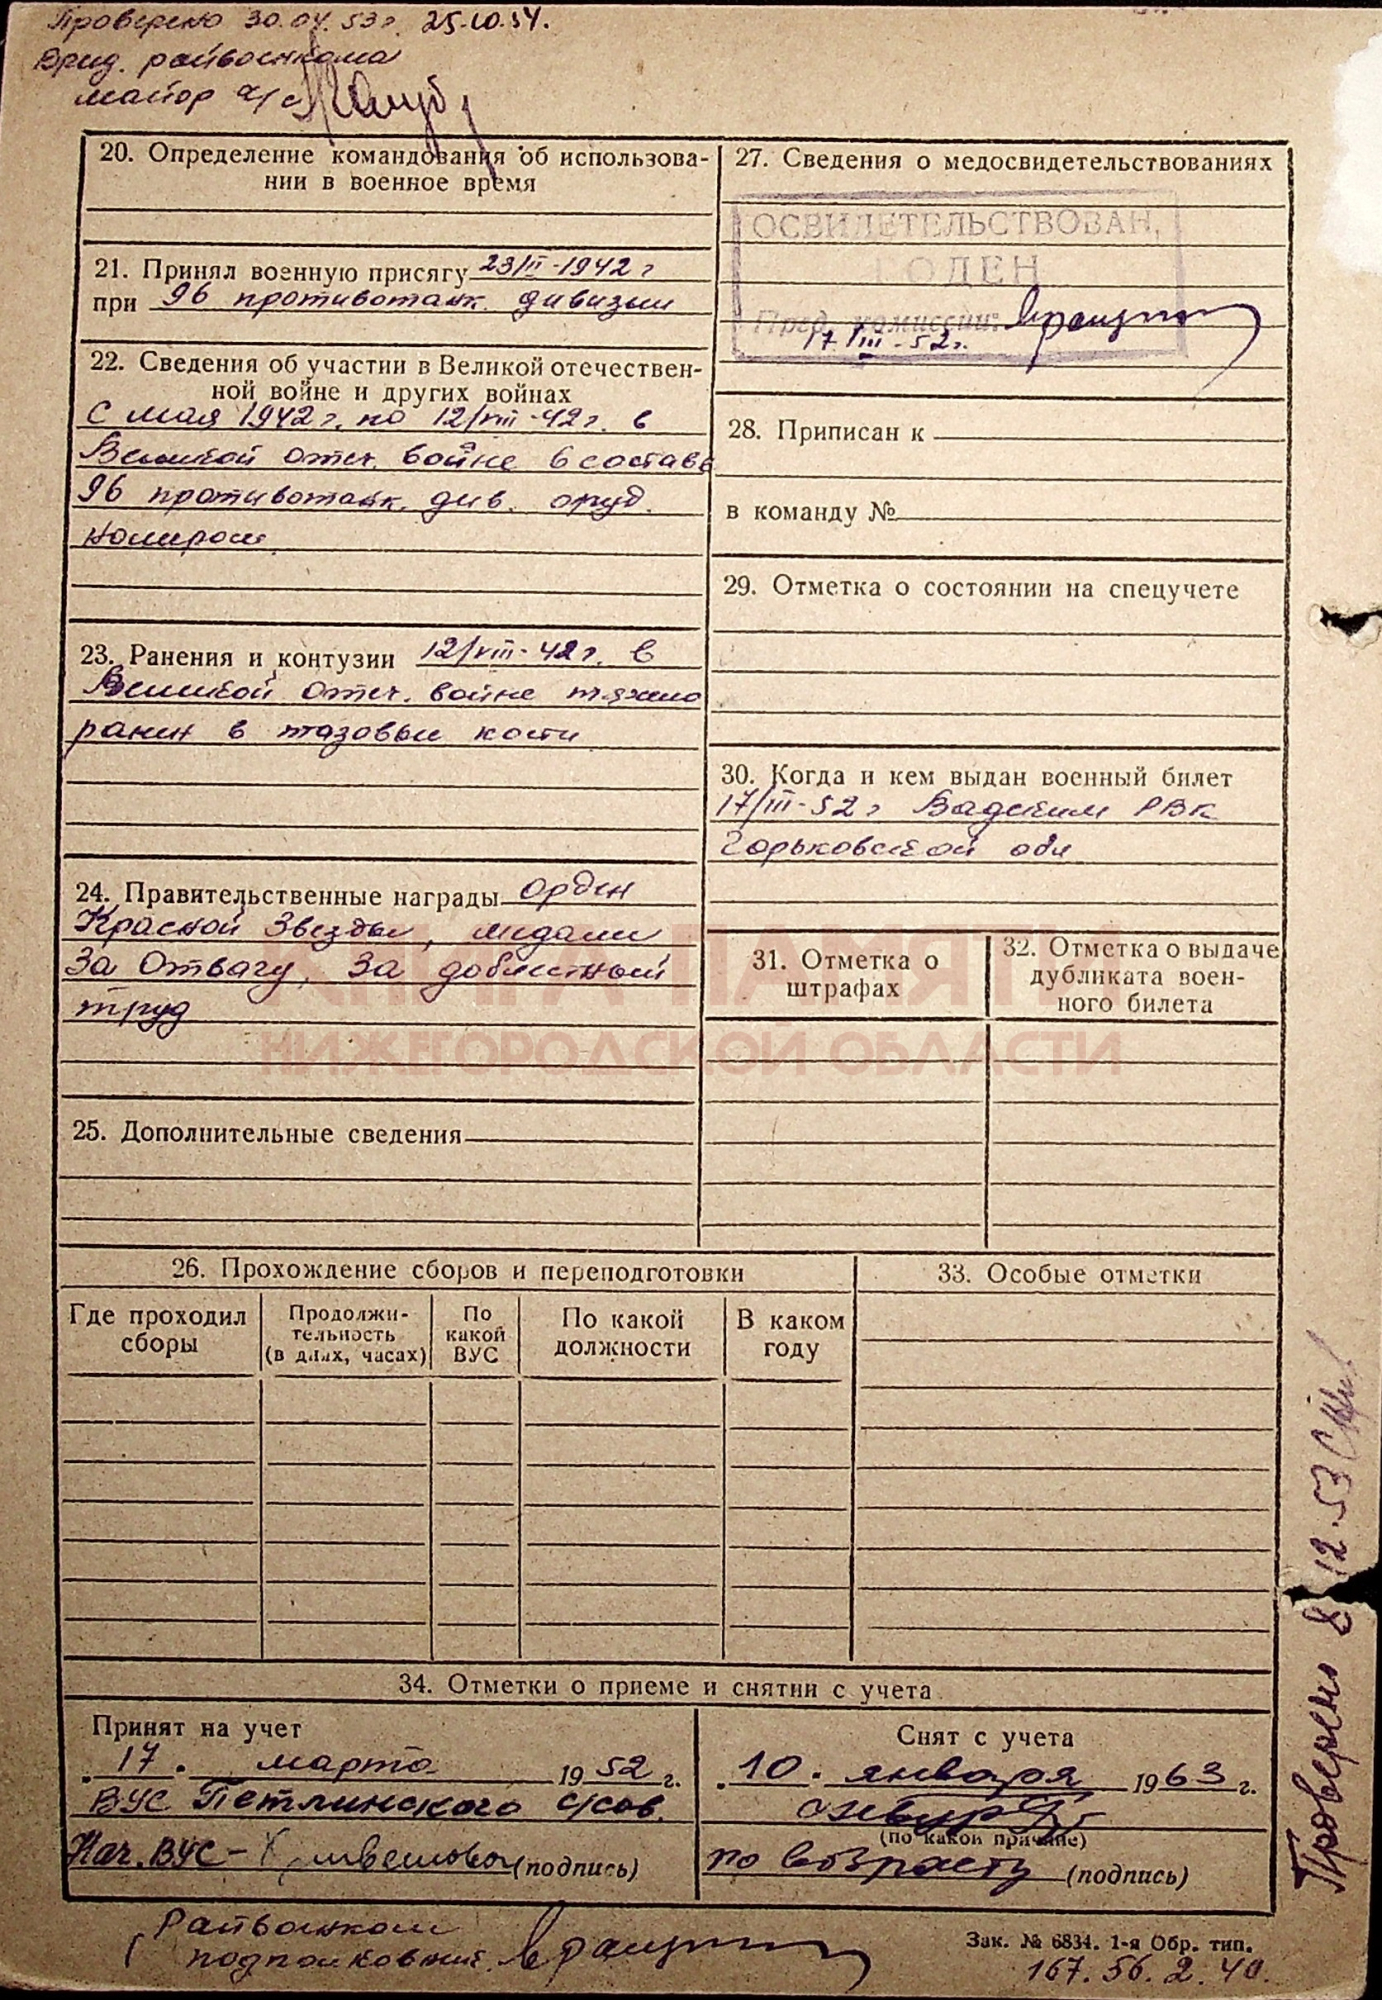 Проверено 30.04.53г. 25.10.54.
Врид. райвоенкома
майор а/с
20. Определение командования об использова-
нии в военное время
21. Принял военную присягу 23/II-1942г
при 96 противотанк. дивизии
22. Сведения об участии в Великой отечествен-
ной войне и других войнах
с мая 1942г. по 12/VIII-42г. в
Великой отеч. войне в составе
96 противотанк. див. оруд.
номером
23. Ранения и контузии 12/VIII-42г. в
Великой Отеч. войне тяжело
ранен в тазовые кости
24. Правительственные награды орден
Красной Звезды, медали
За Отвагу, За доблестный
труд
25. Дополнительные сведения
27. Сведения о медосвидетельствованиях
ОСВИДЕТЕЛЬСТВОВАН,
ГОДЕН
Пред. комиссии:
17/III-52г.
28. Приписан к
в команду №
29. Отметка о состоянии на спецучете
30. Когда и кем выдан военный билет
17/III-52г Вадским РВК
Горьковской обл
31. Отметка о
штрафах
32. Отметка о выдаче
дубликата воен-
ного билета
КНИГА ПАМЯТИ
НИЖЕГОРОДСКОЙ ОБЛАСТИ
26. Прохождение сборов и переподготовки
Где проходил
сборы
Продолжи-
тельность
(в днях, часах)
По
какой
ВУС
По какой
должности
В каком
году
33. Особые отметки
34. Отметки о приеме и снятии с учета
Принят на учет
17. марта 1952г.
ВУС Петлинского с/сов.
Нач. ВУС- (подпись)
Снят с учета
10. января 1963г.
(по какой причине)
по возрасту (подпись)
Райвоенком
подполковник
Зак. № 6834. 1-я Обр. тип.
167.56.2.40.
Проверено 8 12.53